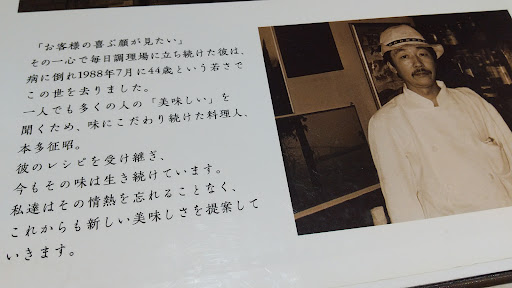 「お客様の喜ぶ顔が見たい」
その一心で毎日調理場に立ち続けた彼は、
病に倒れ1988年7月に44歳という若さで
この世を去りました。
一人でも多くの人の「美味しい」を
聞くため、味にこだわり続けた料理人、
本多征昭。
彼のレシピを受け継ぎ、
今もその味は生き続けています。
私達はその情熱を忘れることなく、
これからも新しい美味しさを提案して
いきます。